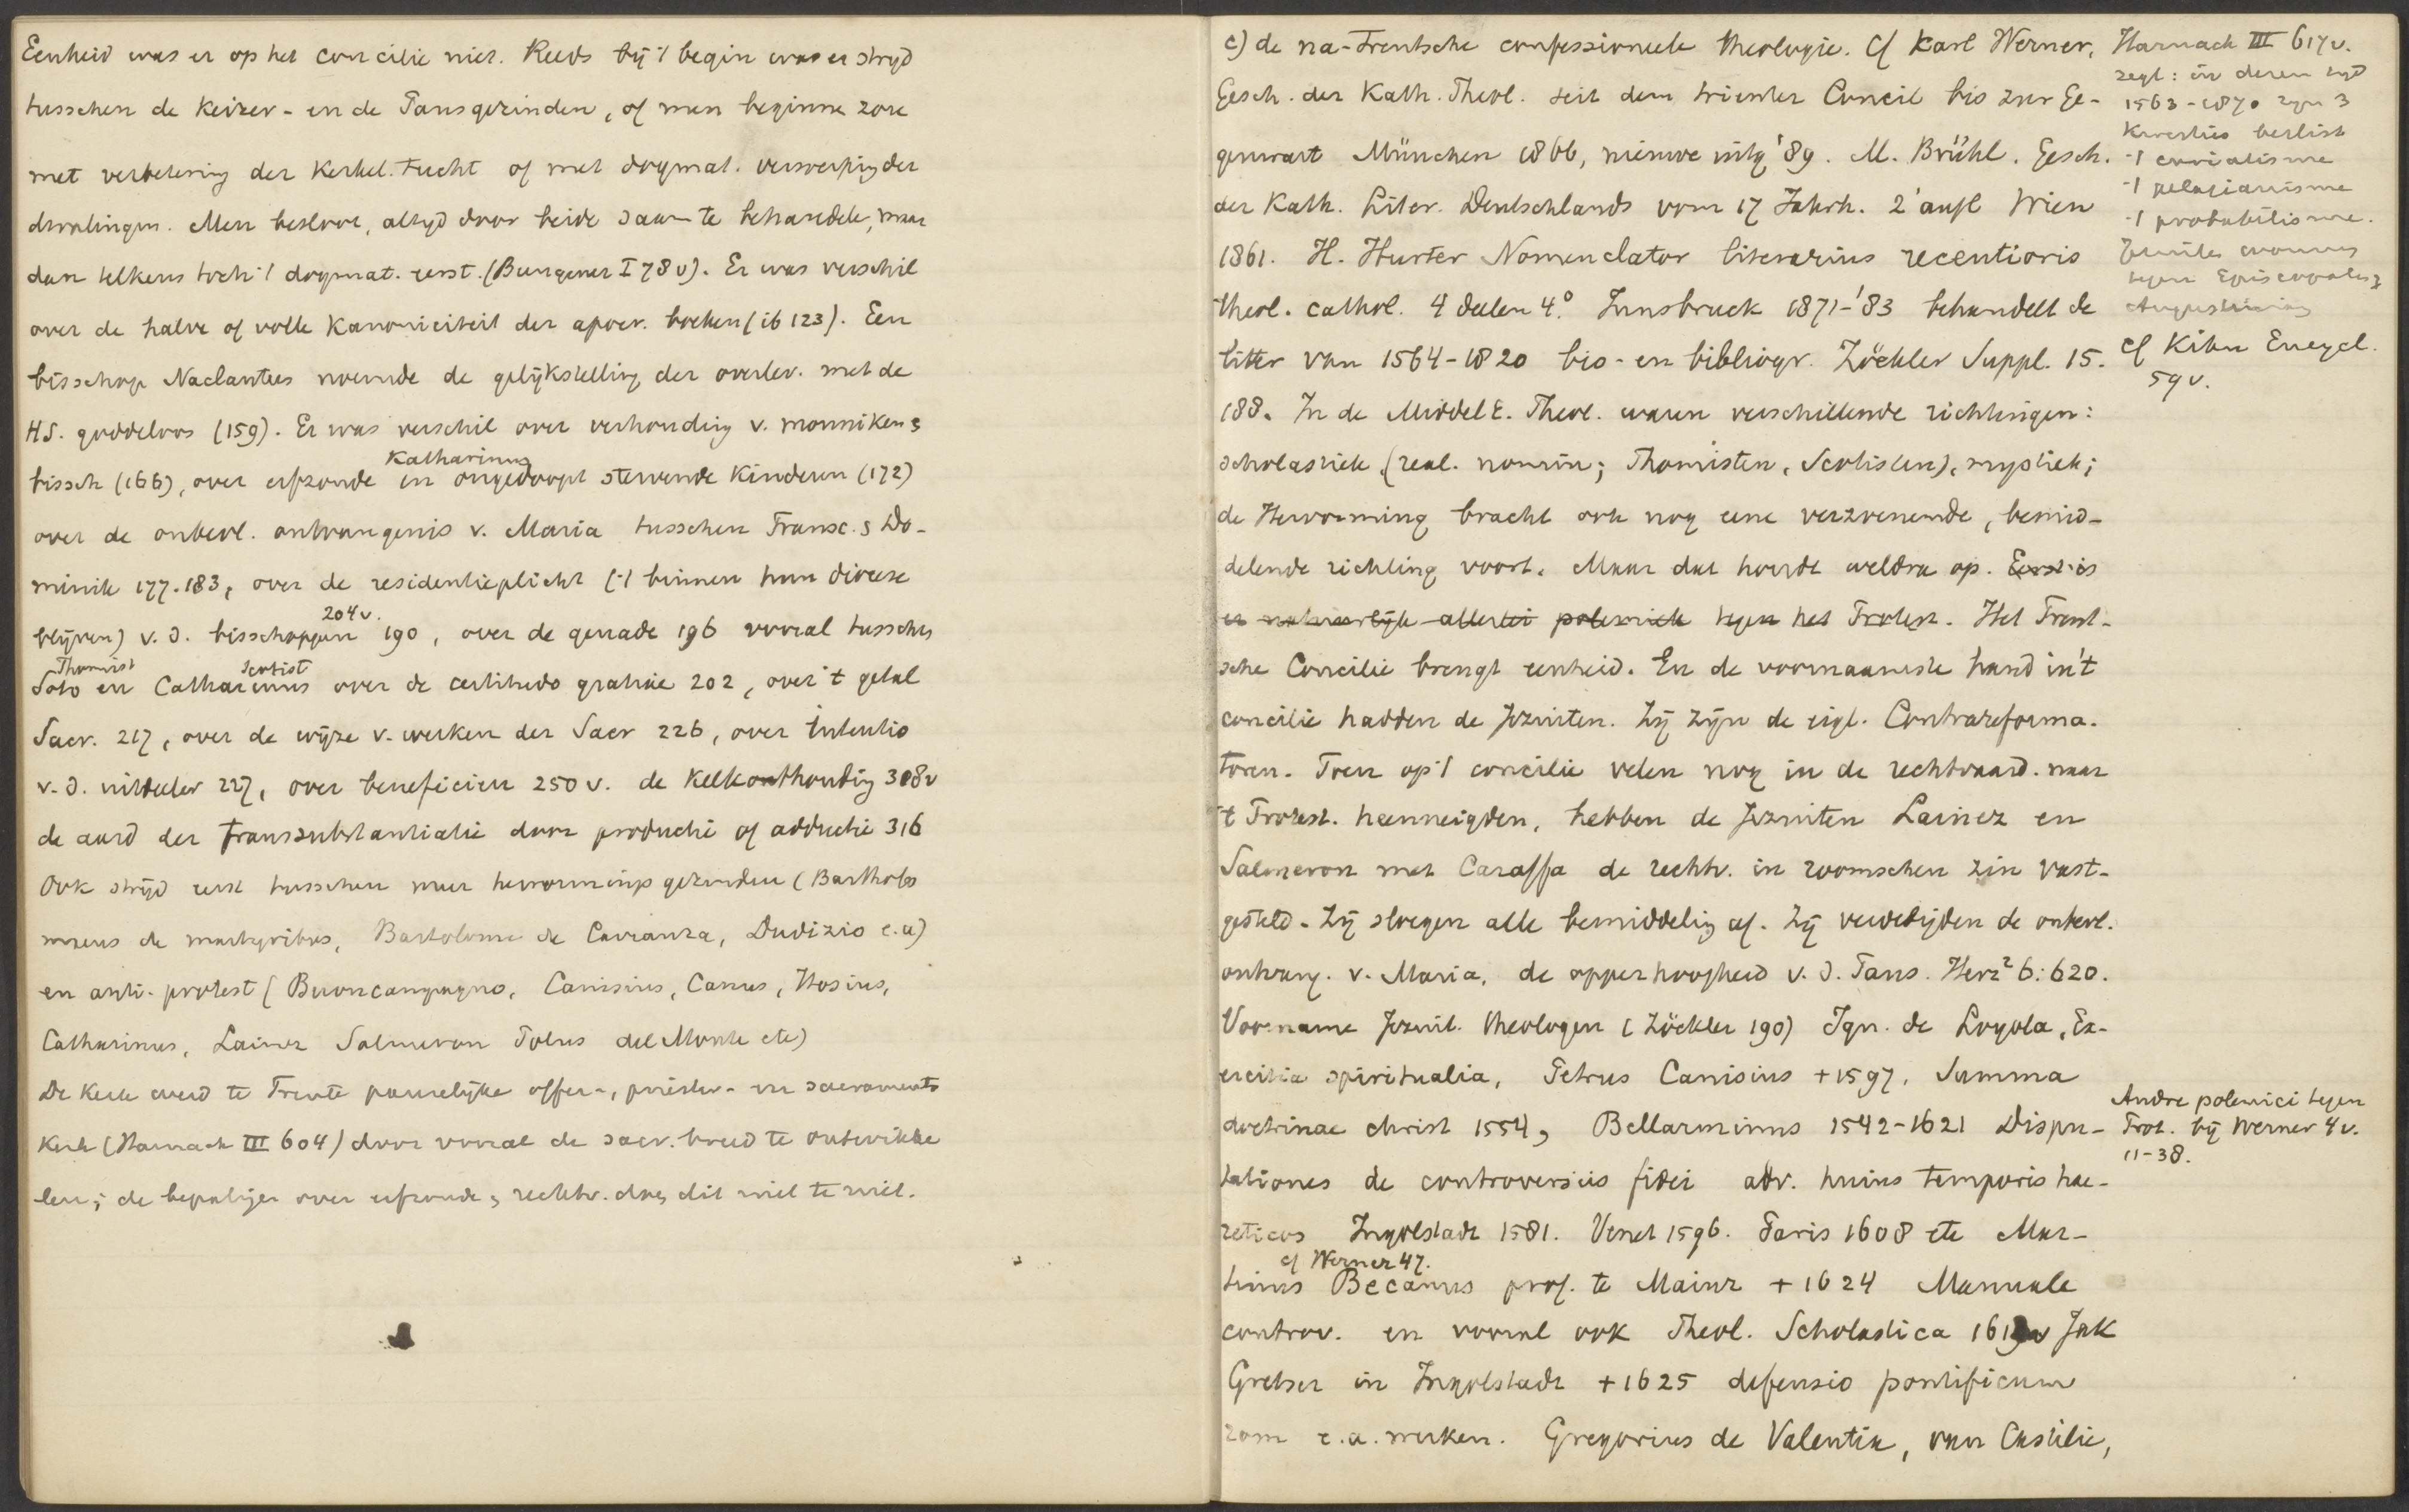 Eenheid was er op het concilie niet. Reeds bij 't begin was er strijd
tusschen de Keizer- en de Pausgezinden, of men beginnen zou
met verbetering der Kerkel. tucht of met dogmat. verwerping der
dwalingen. Men besloot, altijd door beide saam te behandelen, maar
dan telkens toch 't dogmat. eerst. (Bungener I 78 v). Er was verschil
over de halve of volle Kanoniciteit der apocr. boeken (ib 123). Een
bisschop Naclantus noemde de gelijkstelling der overlev. met de
HS. goddeloos (159). Er was verschil over verhouding v. monniken &
bissch (166), over erfzonde en ongedoopt stervende Kinderen (172)
Katharinus
over de onbevl. ontvangenis v. Maria tusschen Fransc. & Do-
minik 177-183, over de residentieplicht ('t binnen hun diocese
blijven) v. d. bisschoppen 190, over de genade 196 vooral tusschen
204 v.
Soto en Catharinus over de certitudo gratiae 202, over 't getal
Thomist Scotist
Sacr. 217, over de wijze v. werken der Sacr 226, over intentio
v. d. uitdeeler 227, over beneficien 250 v. de Kelkonthouding 308 v
de aard der transsubstantiatie door productie of adductie 316
Ook strijd eerst tusschen meer hervormingsgezinden (Bartholo
maeus de martyribus, Bartolome de Carranza, Dudizio e.a)
en anti-protest (Buoncampagno, Canisius, Canus, Hosius,
Catharinus, Lainez Salmeron Polus del Monte etc)
De Kerk werd te Trente pauselijke offer-, priester- en sacraments
Kerk (Harnack III 604) door vooral de sacr. breed te ontwikke
len; de bepalingen over erfzonde, rechtv. doen dit niet te niet.
c) de na-Trentsche confessioneele theologie. Cf Karl Werner,
Gesch. der Kath. Theol. seit dem trienter Concil bis zur Ge-
genwart München 1866, nieuwe uitg '89. M. Brühl. Gesch.
der Kath. Liter. Deutschlands vom 17 Jahrh. 2' aufl Wien
1861. H. Hurter Nomenclator literarius recentioris
theol. cathol. 4 deelen 4° Innsbruck 1871-'83 behandelt de
litter van 1564-1820 bio- en bibliogr. Zöckler Suppl. 15.
188. In de Middel E. Theol. waren verschillende richtingen:
scholastiek (real. nomin; Thomisten, Scotisten), mystiek;
de Hervorming bracht ook nog eene verzoenende, bemid-
delende richting voort. Maar dat houdt weldra op. Eerst is
er natuurlijk allerlei polemiek tegen het Protest. Het Trent-
sche Concilie brengt eenheid. En de voornaamste hand in 't
concilie hadden de Jezuiten. Zij zijn de eigl. Contrareforma-
toren. Toen op 't concilie velen nog in de rechtvaard. naar
't Protest. heenneigden, hebben de Jezuiten Lainez en
Salmeron met Caraffa de rechtv. in roomschen zin vast-
gesteld. Zij sloegen alle bemiddeling af. Zij verdedigden de onbevl.
ontvang. v. Maria, de opperhoogheid v. d. Paus. Herz² 6:620.
Voorname Jezuit. theologen (Zöckler 190) Ign. de Loyola, Ex-
ercitia spiritualia, Petrus Canisius +1597, Summa
doctrinae christ 1554, Bellarminus 1542-1621 Dispu-
tationes de controversiis fidei adv. huius temporis hae-
reticos Ingolstadt 1581. Venet 1596. Paris 1608 etc Mar-
tinus Becanus prof. te Mainz + 1624 Manuale
cf Werner 47.
controv. en vooral ook Theol. Scholastica Jak
Gretser in Ingolstadt +1625 defensio pontificum
rom e.a. werken. Gregorius de Valentia, van Castilië,
Harnack III 617 v.
zegt: in dezen tijd
1563-1870 zijn 3
Kwesties beslist
't curialisme
't pelagianisme
't probabilisme.
tegen Episcopales &
Augustinus
cf Kihn Encycl.
59 v.
Andre polemici tegen
Prot. bij Werner 4 v.
11-38.